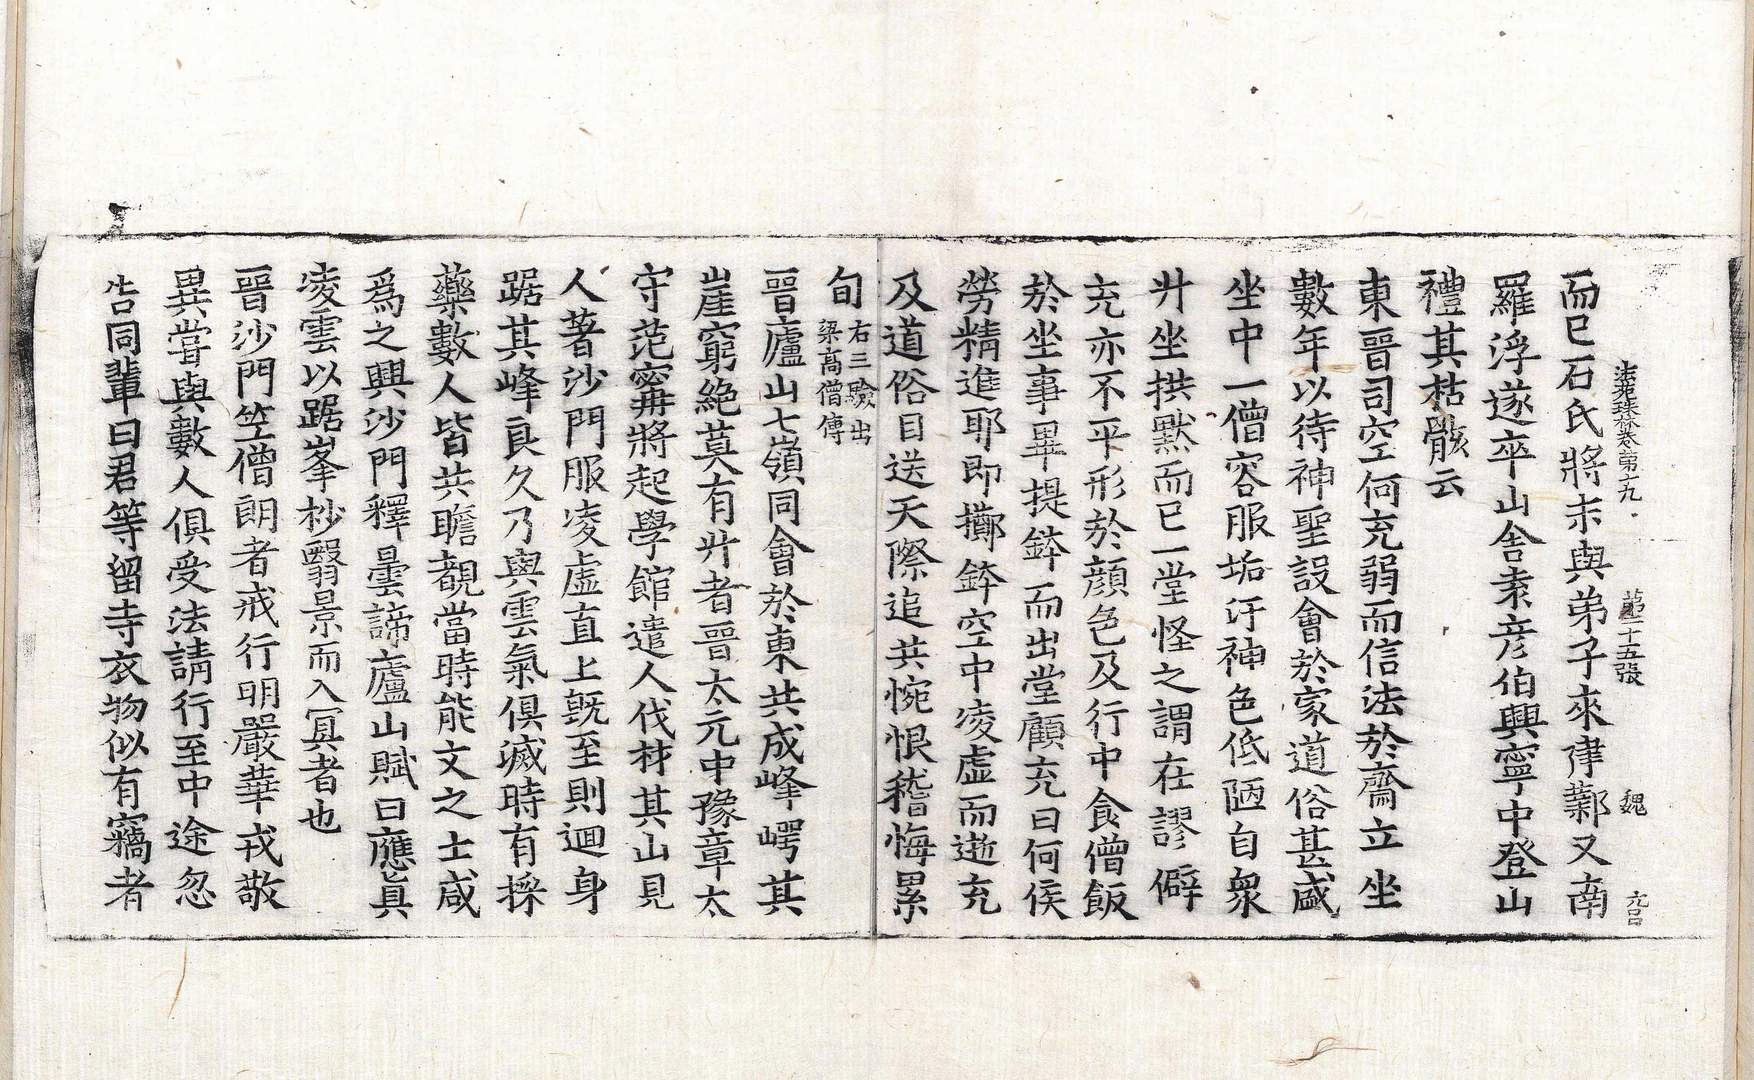 法苑珠林卷第十九　第二十五張　魏　九号
而已石氏將末與弟子來建鄴又南
羅浮遂卒山舍袁彦伯興寧中登山
禮其枯骸云
東晉司空何充弱而信法於齋立坐
數年以待神聖設會於家道俗甚盛
坐中一僧容服垢汙神色低陋自衆
升坐拱默而已一堂怪之謂在謬僻
充亦不平形於顔色及行中食僧飯
於坐事畢提鉢而出堂顧充曰何侯
勞精進耶即擲鉢空中凌虚而逝充
及道俗目送天際追共惋恨稽悔累
旬右三驗出梁髙僧傳
晉廬山七嶺同會於東共成峰崿其
崖窮絶莫有升者晉太元中豫章太
守范甯將起學館遣人伐材其山見
人著沙門服凌虚直上既至則迴身
踞其峰良久乃與雲氣俱滅時有採
藥數人皆共瞻覩當時能文之士咸
爲之興沙門釋曇諦廬山賦曰應真
凌雲以踞峯杪翳景而入冥者也
晉沙門竺僧朗者戒行明嚴華戎敬
異嘗與數人俱受法請行至中途忽
告同輩曰君等留寺衣物似有竊者